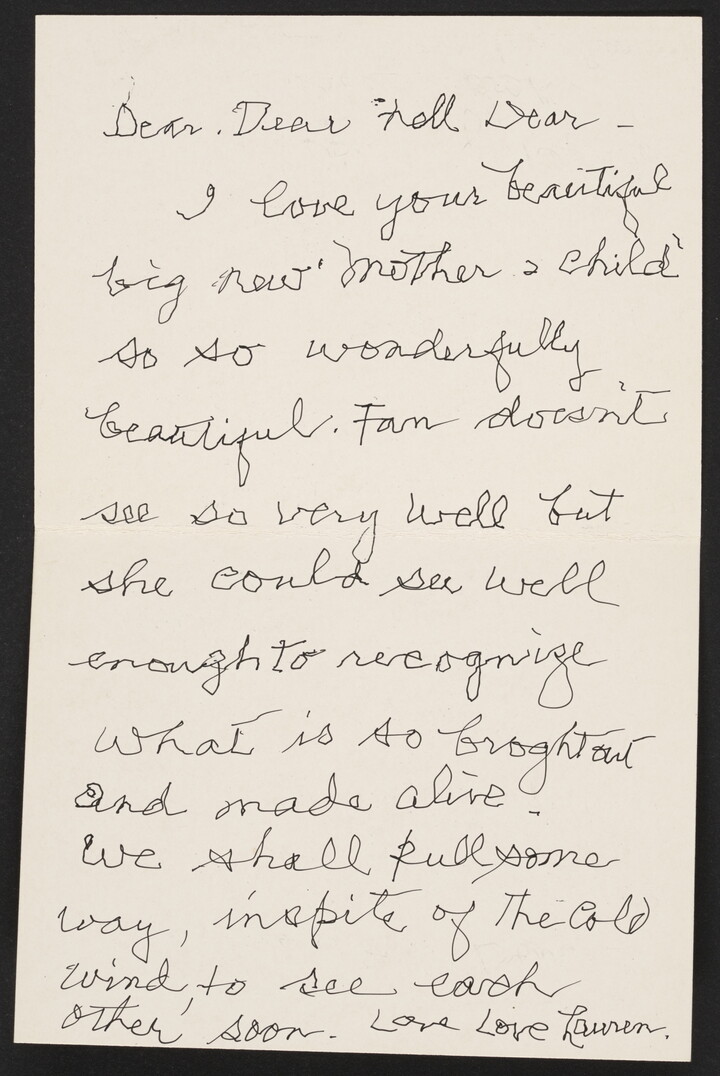 Dear. Dear Doll Dear -
I love your beautiful
big new 'Mother & Child'
so so wonderfully
beautiful. Fan doesn't
see so very well but
she could see well
enough to recognize
what is so broght out
and made alive.
We shall pull some
way, inspite of the Cold
wind, to see each
other soon. Love Love Lauren.